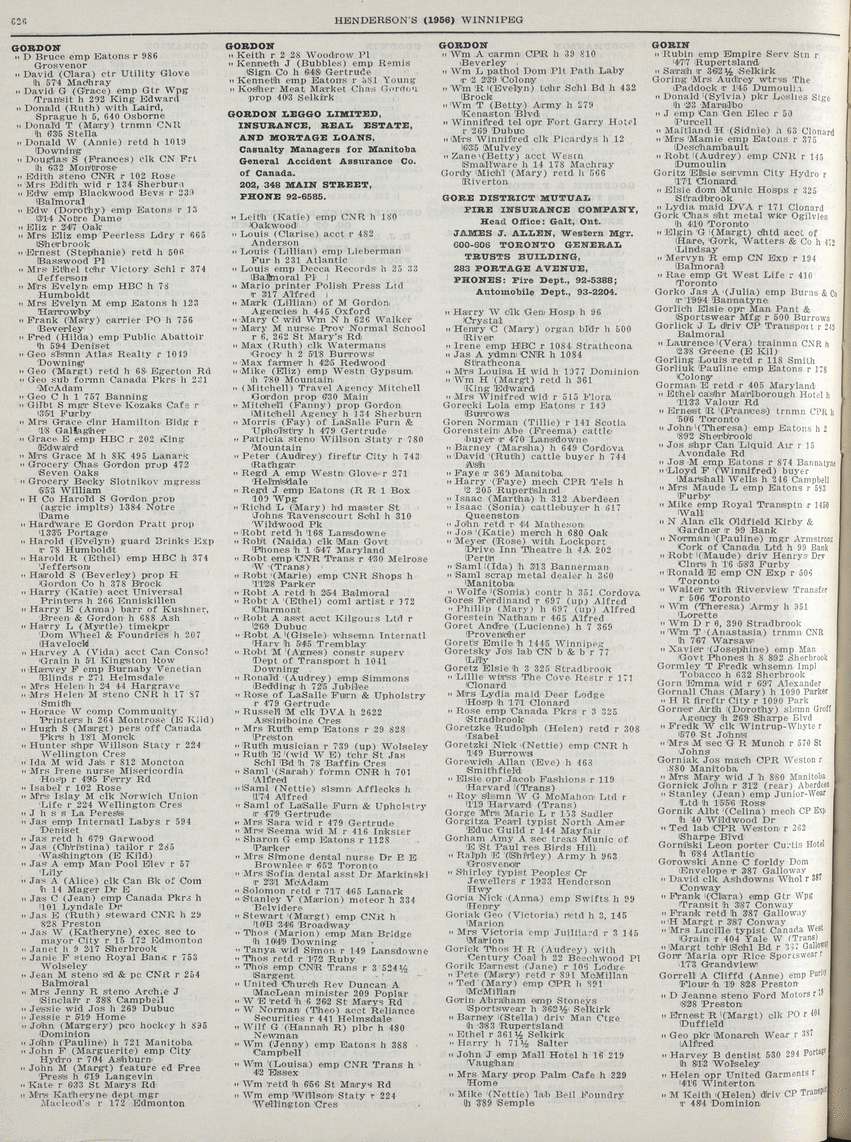 626
HENDERSON'S (1956) WINNIPEG
GORDON
" D Bruce emp Eatons r 986
Grosvenor
" David (Clara) ctr Utility Glove
h 574 Machray
" David G (Grace) emp Gtr Wpg
Transit h 292 King Edward
" Donald (Ruth) with Laird,
Sprague h 5, 640 Osborne
" Donald T (Mary) trnmn CNR
h 635 Stella
" Donald W (Annie) retd h 1019
Downing
" Douglas S (Frances) clk CN Frt
h 632 Montrose
" Edith steno CNR r 102 Rose
" Mrs Edith wid r 134 Sherburn
" Edw emp Blackwood Bevs r 239
Balmoral
" Edw (Dorothy) emp Eatons r 13
314 Notre Dame
" Eliz r 247 Oak
" Mrs Eliz emp Peerless Ldry r 665
Sherbrook
" Ernest (Stephanie) retd h 506
Basswood Pl
" Mrs Ethel tchr Victory Schl r 374
Jefferson
" Mrs Evelyn emp HBC h 78
Humboldt
" Mrs Evelyn M emp Eatons h 123
Harrowby
" Frank (Mary) carrier PO h 756
Beverley
" Fred (Hilda) emp Public Abattoir
h 594 Deniset
" Geo slsmn Atlas Realty r 1049
Downing
" Geo (Margt) retd h 68 Egerton Rd
" Geo sub formn Canada Pkrs h 231
McAdam
" Geo C h 1 757 Banning
" Gilbt S mgr Steve Kozaks Cafe r
351 Furby
" Mrs Grace clnr Hamilton Bldg r
18 Gallagher
" Grace E emp HBC r 202 King
Edward
" Mrs Grace M h SK 495 Lanark
" Grocery Chas Gordon prop 472
Seven Oaks
" Grocery Becky Slotnikov mgress
653 William
" H Co Harold S Gordon prop
(agric implts) 1384 Notre
Dame
" Hardware E Gordon Pratt prop
1335 Portage
" Harold (Evelyn) guard Brinks Exp
r 78 Humboldt
" Harold R (Ethel) emp HBC h 374
Jefferson
" Harold S (Beverley) prop H
Gordon Co h 378 Brock
" Harry (Katie) acct Universal
Printers h 266 Enniskillen
" Harry E (Anna) barr of Kushner,
Breen & Gordon h 688 Ash
" Harry L (Myrtle) timekpr
Dom Wheel & Foundries h 207
Havelock
" Harvey A (Vida) acct Can Consol
Grain h 51 Kingston Row
" Harvey F emp Burnaby Venetian
Blinds r 271 Helmsdale
" Mrs Helen h 24 44 Hargrave
" Mrs Helen M steno CNR h 17 87
Smith
" Horace W comp Community
Printers h 264 Montrose (E Kild)
" Hugh S (Margt) pers off Canada
Pkrs h 181 Monck
" Hunter shpr Willson Staty r 224
Wellington Cres
" Ida M wid Jas r 812 Moncton
" Mrs Irene nurse Misericordia
Hosp r 495 Ferry Rd
" Isabel r 102 Rose
" Mrs Islay M clk Norwich Union
Life r 224 Wellington Cres
" J h s s La Peress
" Jas emp Internatl Labys r 594
Deniset
" Jas retd h 679 Garwood
" Jas (Christina) tailor r 285
Washington (E Kild)
" Jas A emp Man Pool Elev r 57
Lily
" Jas A (Alice) clk Can Bk of Com
h 14 Mager Dr E
" Jas C (Jean) emp Canada Pkrs h
101 Lyndale Dr
" Jas E (Ruth) steward CNR h 29
828 Preston
" Jas W (Katheryne) exec sec to
mayor City r 15 172 Edmonton
" Janet h 9 217 Sherbrook
" Janie F steno Royal Bank r 753
Wolseley
" Jean M steno sd & pc CNR r 254
Balmoral
" Mrs Jenny R steno Archie J
Sinclair r 388 Campbell
" Jessie wid Jos h 269 Dubuc
" Jessie r 519 Home
" John (Margery) pro hockey h 895
Dominion
" John (Pauline) h 721 Manitoba
" John F (Marguerite) emp City
Hydro r 704 Ashburn
" John M (Margt) feature ed Free
Press h 619 Langevin
" Kate r 633 St Marys Rd
" Mrs Katheryne dept mgr
Macleod's r 172 Edmonton
GORDON
" Keith r 2 28 Woodrow Pl
" Kenneth J (Bubbles) emp Remis
Sign Co h 648 Gertrude
" Kenneth emp Eatons r 381 Young
" Kosher Meat Market Chas Gordon
prop 403 Selkirk
GORDON LEGGO LIMITED,
INSURANCE, REAL ESTATE,
AND MORTGAGE LOANS,
Casualty Managers for Manitoba
General Accident Assurance Co.
of Canada.
202, 348 MAIN STREET,
PHONE 92-6585.
" Leith (Katie) emp CNR h 180
Oakwood
" Louis (Clarise) acct r 482
Anderson
" Louis (Lillian) emp Lieberman
Fur h 231 Atlantic
" Louis emp Decca Records h 25 33
Balmoral Pl
" Mario printer Polish Press Ltd
r 317 Alfred
" Mark (Lillian) of M Gordon
Agencies h 445 Oxford
" Mary C wid Wm N h 626 Walker
" Mary M nurse Prov Normal School
r 6, 262 St Mary's Rd
" Max (Ruth) clk Watermans
Grocy h 2 518 Burrows
" Max farmer h 425 Redwood
" Mike (Eliz) emp Westn Gypsum
h 780 Mountain
" (Mitchell) Travel Agency Mitchell
Gordon prop 630 Main
" Mitchell (Fanny) prop Gordon
Mitchell Agency h 134 Sherburn
" Morris (Fay) of LaSalle Furn &
Upholstry h 479 Gertrude
" Patricia steno Willson Staty r 780
Mountain
" Peter (Audrey) fireftr City h 743
Rathgar
" Regd A emp Westn Glove r 271
Helmsdale
" Regd J emp Eatons (R R 1 Box
109 Wpg
" Richd L (Mary) hd master St
Johns Ravenscourt Schl h 310
Wildwood Pk
" Robt retd h 168 Lansdowne
" Robt (Naida) clk Man Govt
Phones h 1 547 Maryland
" Robt emp CNR Trans r 430 Melrose
W (Trans)
" Robt (Marie) emp CNR Shops h
1128 Parker
" Robt A retd h 254 Balmoral
" Robt A (Ethel) coml artist r 172
Clarmont
" Robt A asst acct Kilgours Ltd r
269 Dubuc
" Robt A (Gisele) whsemn Internatl
Harv h 545 Tremblay
" Robt M (Agnes) constr superv
Dept of Transport h 1041
Downing
" Ronald (Audrey) emp Simmons
Bedding h 725 Jubilee
" Rose of LaSalle Furn & Upholstry
r 479 Gertrude
" Russell M clk DVA h 2622
Assiniboine Cres
" Mrs Ruth emp Eatons r 29 828
Preston
" Ruth musician r 739 (up) Wolseley
" Ruth E (wid W E) tchr St Jas
Schl Bd h 78 Baffin Cres
" Saml (Sarah) formn CNR h 701
Alfred
" Saml (Nettie) slsmn Afflecks h
174 Alfred
" Saml of LaSalle Furn & Upholstry
r 479 Gertrude
" Mrs Sara wid r 479 Gertrude
" Mrs Seema wid M r 416 Inkster
" Sharon G emp Eatons r 1128
Parker
" Mrs Simone dental nurse Dr B E
Brownlee r 652 Toronto
" Mrs Sofia dental asst Dr Markinski
r 231 McAdam
" Solomon retd r 717 465 Lanark
" Stanley W (Marion) meteor h 334
Belvidere
" Stewart (Margt) emp CNR h
10B 346 Broadway
" Thos (Marion) emp Man Bridge
h 1049 Downing
" Tanya wid Simon r 149 Lansdowne
" Thos retd r 172 Ruby
" Thos emp CNR Trans r 3 524½
Sargent
" United Church Rev Duncan A
MacLean minister 209 Poplar
" W E retd h 6 262 St Marys Rd
" W Norman (Theo) acct Reliance
Securities r 441 Helmsdale
" Wilf G (Hannah R) plbr h 480
Newman
" Wm (Jenny) emp Eatons h 388
Campbell
" Wm (Louisa) emp CNR Trans h
42 Essex
" Wm retd h 656 St Marys Rd
" Wm emp Willson Staty r 224
Wellington Cres
GORDON
" Wm A carmn CPR h 39 810
Beverley
" Wm L pathol Dom Plt Path Laby
r 2 239 Colony
" Wm R (Evelyn) tchr Schl Bd h 432
Brock
" Wm T (Betty) Army h 279
Kenaston Blvd
" Winnifred tel opr Fort Garry Hotel
r 269 Dubuc
" Mrs Winnifred clk Picardys h 12
635 Mulvey
" Zane (Betty) acct Westn
Smallware h 14 178 Machray
Gordy Michl (Mary) retd h 566
Riverton
GORE DISTRICT MUTUAL
FIRE INSURANCE COMPANY,
Head Office: Galt, Ont.
JAMES J. ALLEN, Western Mgr.
600-606 TORONTO GENERAL
TRUSTS BUILDING,
283 PORTAGE AVENUE,
PHONES: Fire Dept., 92-5388;
Automobile Dept., 93-2204.
" Harry W clk Gen Hosp h 96
Crystal
" Henry C (Mary) organ bldr h 500
River
" Irene emp HBC r 1084 Strathcona
" Jas A ydmn CNR h 1084
Strathcona
" Mrs Louisa H wid h 1077 Dominion
" Wm H (Margt) retd h 361
King Edward
" Mrs Winifred wid r 515 Flora
Gorecki Lola emp Eatons r 149
Burrows
Goren Norman (Tillie) r 141 Scotia
Gorenstein Abe (Freema) cattle
buyer r 470 Lansdowne
" Barney (Marsha) h 649 Cordova
" David (Ruth) cattle buyer h 744
Ash
" Faye r 369 Manitoba
" Harry (Faye) mech CPR Tels h
2 205 Rupertsland
" Isaac (Martha) h 312 Aberdeen
" Isaac (Sonia) cattlebuyer h 617
Queenston
" John retd r 44 Matheson
" Jos (Katie) merch h 680 Oak
" Meyer (Rose) with Lockport
Drive Inn Theatre h 4A 202
Perth
" Saml (Ida) h 313 Bannerman
" Saml scrap metal dealer h 360
Manitoba
" Wolfe (Sonia) contr h 351 Cordova
Gores Ferdinand r 697 (up) Alfred
" Phillip (Mary) h 697 (up) Alfred
Gorestein Nathan r 465 Alfred
Goret Andre (Lucienne) h 7 369
Provencher
Gorets Emile h 1445 Winnipeg
Goretsky Jos lab CN b & b r 77
Lily
Goretz Elsie h 3 325 Stradbrook
" Lillie wtrss The Cove Restr r 171
Clonard
" Mrs Lydia maid Deer Lodge
Hosp h 171 Clonard
" Rose emp Canada Pkrs r 3 325
Stradbrook
Goretzke Rudolph (Helen) retd r 308
Isabel
Goretzki Nick (Nettie) emp CNR h
149 Burrows
Gorewich Allan (Eve) h 463
Smithfield
" Elsie opr Jacob Fashions r 119
Harvard (Trans)
" Roy slsmn W G McMahon Ltd r
119 Harvard (Trans)
Gorge Mrs Marie L r 153 Sadler
Gorgitza Pearl typist North Amer
Educ Guild r 144 Mayfair
Gorham Amy A sec treas Munic of
E St Paul res Birds Hill
" Ralph E (Shirley) Army h 963
Grosvenor
" Shirley typist Peoples Cr
Jewellers r 1933 Henderson
Hwy
Goria Nick (Anna) emp Swifts h 99
Henry
Goriak Geo (Victoria) retd h 3, 145
Marion
" Mrs Victoria emp Juilliard r 3 145
Marion
Gorick Thos H R (Audrey) with
Century Coal h 22 Beechwood Pl
Gorik Earnest (Jane) r 106 Lodge
" Pete (Mary) retd r 891 McMillan
" Ted (Mary) emp CPR h 891
McMillan
Gorin Abraham emp Stoneys
Sportswear h 362½ Selkirk
" Barney (Stella) driv Man Ctge
h 383 Rupertsland
" Ethel r 361½ Selkirk
" Harry h 71½ Salter
" John J emp Mall Hotel h 16 219
Vaughan
" Mrs Mary prop Palm Cafe h 229
Home
" Mike (Nettie) lab Beil Foundry
h 389 Semple
GORIN
" Rubin emp Empire Serv Stn r
477 Rupertsland
" Sarah r 362½ Selkirk
Goring Mrs Audrey wtrss The
Paddock r 145 Dumoulin
" Donald (Sylvia) pkr Leslies Stge
h 23 Maralbo
" J emp Can Gen Elec r 50
Purcell
" Maitland H (Sidnie) h 63 Clonard
" Mrs Mamie emp Eatons r 375
Deschambault
" Robt (Audrey) emp CNR r 145
Dumoulin
Goritz Elsie servmn City Hydro r
171 Clonard
" Elsie dom Munic Hosps r 325
Stradbrook
" Lydia maid DVA r 171 Clonard
Gork Chas sht metal wkr Ogilvies
h 410 Toronto
" Elgin G (Margt) chtd acct of
Hare, Gork, Watters & Co h 412
Lindsay
" Mervyn R emp CN Exp r 194
Balmoral
" Rae emp Gt West Life r 410
Toronto
Gorko Jas A (Julia) emp Burns & Co
r 1994 Bannatyne
Gorlich Elsie opr Man Pant &
Sportswear Mfg r 500 Burrows
Gorlick J L driv CP Transport r 249
Balmoral
" Laurence (Vera) trainmn CNR h
238 Greene (E Kil)
Gorling Louis retd r 118 Smith
Gorliuk Pauline emp Eatons r 178
Colony
Gorman E retd r 405 Maryland
" Ethel cashr Marlborough Hotel h
1133 Valour Rd
" Ernest R (Frances) trnmn CPR h
506 Toronto
" John (Theresa) emp Eatons h 2
892 Sherbrook
" Jos shpr Can Liquid Air r 15
Avondale Rd
" Jos M emp Eatons r 874 Bannatyne
" Lloyd F (Winnifred) buyer
Marshall Wells h 246 Campbell
" Mrs Maude L emp Eatons r 583
Furby
" Mike emp Royal Transptn r 1450
Wall
" N Alan clk Oldfield Kirby &
Gardner r 99 Bank
" Norman (Pauline) mgr Armstrong
Cork of Canada Ltd h 99 Bank
" Robt (Maude) driv Henrys Dry
Clnrs h 16 583 Furby
" Ronald E emp CN Exp r 506
Toronto
" Walter with Riverview Transfer
r 506 Toronto
" Wm (Theresa) Army h 951
Lorette
" Wm D r 6, 390 Stradbrook
" Wm T (Anastasia) trnmn CNR
h 767 Warsaw
" Xavier (Josephine) emp Man
Govt Phones h 8 892 Sherbrook
Gormley T Predk whsemn Impl
Tobacco h 632 Sherbrook
Gorn Emma wid r 697 Alexander
Gornall Chas (Mary) h 1090 Parker
" H R fireftr City r 1090 Park
Gorner Arth (Dorothy) slsmn Groff
Agency h 269 Sharpe Blvd
" Fredk W clk Wintrup-Whyte r
570 St Johns
" Mrs M sec G R Munch r 570 St
Johns
Gorniak Jos mach CPR Weston r
880 Manitoba
" Mrs Mary wid J h 880 Manitoba
Gornick John r 312 (rear) Aberdeen
" Stanley (Jean) emp Junior-Wear
Ltd h 1556 Ross
Gornik Albt (Celina) mech CP Exp
h 40 Wildwood Dr
" Ted lab CPR Weston r 262
Sharpe Blvd
Gorniski Leon porter Curtis Hotel
h 684 Atlantic
Gorowski Anne C forldy Dom
Envelope r 387 Galloway
" David clk Ashdowns Whol r 387
Conway
" Frank (Clara) emp Gtr Wpg
Transit h 387 Conway
" Frank retd h 387 Galloway
" H Margt r 387 Conway
" Mrs Lucille typist Canada West
Grain r 404 Yale W (Trans)
" Margt tchr Schl Bd r 387 Galloway
Gorr Maria opr Rice Sportswear r
173 Grandview
Gorrell A Cliffd (Anne) emp Purity
Flour h 19 828 Preston
" D Jeanne steno Ford Motors r 19
828 Preston
" Ernest R (Margt) clk PO r 404
Duffield
" Geo pkr Monarch Wear r 387
Alfred
" Harvey B dentist 530 294 Portage
h 812 Wolseley
" Helen opr United Garments r
416 Winterton
" M Keith (Helen) driv CP Transport
r 484 Dominion